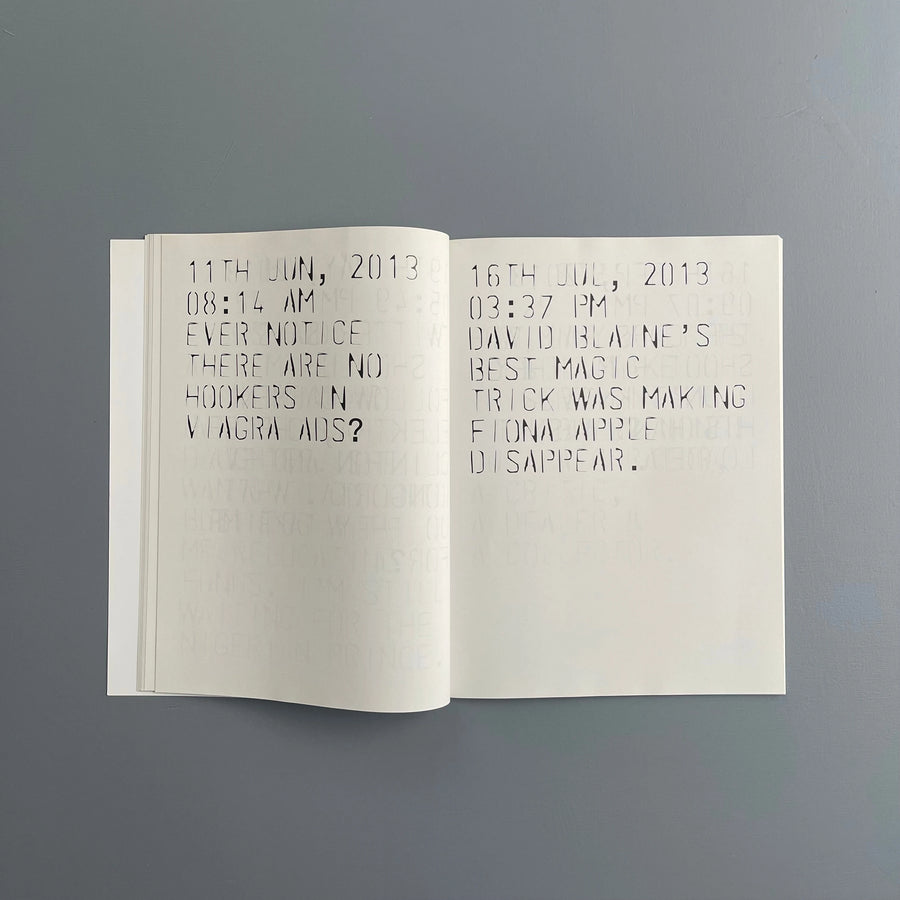 11TH JUN, 2013
08:14 AM
EVER NOTICE
THERE ARE NO
HOOKERS IN
VIAGRA ADS?
16TH JUL, 2013
03:37 PM
DAVID BLAINE'S
BEST MAGIC
TRICK WAS MAKING
FIONA APPLE
DISAPPEAR.